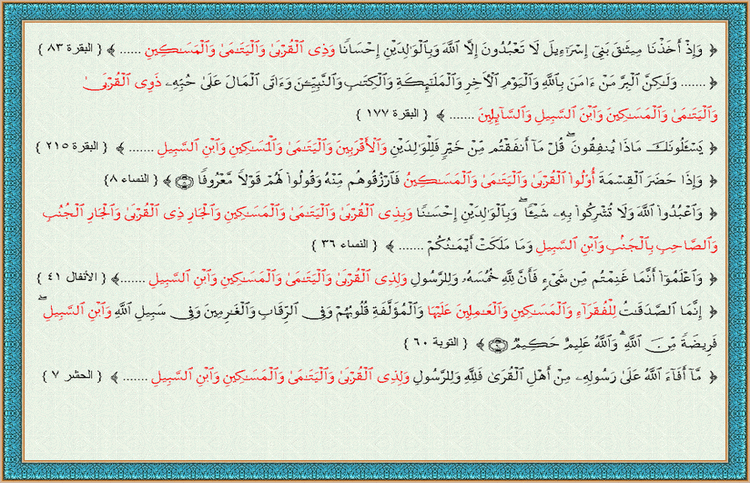 ﴿ وَإِذْ أَخَذْنَا مِيثَٰقَ بَنِىٓ إِسْرَٰٓءِيلَ لَا تَعْبُدُونَ إِلَّا ٱللَّهَ وَبِٱلْوَٰلِدَيْنِ إِحْسَانًا وَذِى ٱلْقُرْبَىٰ وَٱلْيَتَٰمَىٰ وَٱلْمَسَٰكِينِ ...... ﴾ { البقرة ٨٣ }
﴿ ....... وَلَٰكِنَّ ٱلْبِرَّ مَنْ ءَامَنَ بِٱللَّهِ وَٱلْيَوْمِ ٱلْءَاخِرِ وَٱلْمَلَٰٓئِكَةِ وَٱلْكِتَٰبِ وَٱلنَّبِيِّۦنَ وَءَاتَى ٱلْمَالَ عَلَىٰ حُبِّهِۦ ذَوِى ٱلْقُرْبَىٰ
وَٱلْيَتَٰمَىٰ وَٱلْمَسَٰكِينَ وَٱبْنَ ٱلسَّبِيلِ وَٱلسَّآئِلِينَ ....... ﴾ { البقرة ١٧٧ }
﴿ يَسْـَٔلُونَكَ مَاذَا يُنفِقُونَ ۖ قُلْ مَآ أَنفَقْتُم مِّنْ خَيْرٍ فَلِلْوَٰلِدَيْنِ وَٱلْأَقْرَبِينَ وَٱلْيَتَٰمَىٰ وَٱلْمَسَٰكِينِ وَٱبْنِ ٱلسَّبِيلِ ....... ﴾ { البقرة ٢١٥ }
﴿ وَإِذَا حَضَرَ ٱلْقِسْمَةَ أُو۟لُوا۟ ٱلْقُرْبَىٰ وَٱلْيَتَٰمَىٰ وَٱلْمَسَٰكِينُ فَٱرْزُقُوهُم مِّنْهُ وَقُولُوا۟ لَهُمْ قَوْلًا مَّعْرُوفًا ۝٨ ﴾ { النساء ٨ }
﴿ وَٱعْبُدُوا۟ ٱللَّهَ وَلَا تُشْرِكُوا۟ بِهِۦ شَيْـًٔا ۖ وَبِٱلْوَٰلِدَيْنِ إِحْسَٰنًا وَبِذِى ٱلْقُرْبَىٰ وَٱلْيَتَٰمَىٰ وَٱلْمَسَٰكِينِ وَٱلْجَارِ ذِى ٱلْقُرْبَىٰ وَٱلْجَارِ ٱلْجُنُبِ
وَٱلصَّاحِبِ بِٱلْجَنۢبِ وَٱبْنِ ٱلسَّبِيلِ وَمَا مَلَكَتْ أَيْمَٰنُكُمْ ....... ﴾ { النساء ٣٦ }
﴿ وَٱعْلَمُوٓا۟ أَنَّمَا غَنِمْتُم مِّن شَىْءٍ فَأَنَّ لِلَّهِ خُمُسَهُۥ وَلِلرَّسُولِ وَلِذِى ٱلْقُرْبَىٰ وَٱلْيَتَٰمَىٰ وَٱلْمَسَٰكِينِ وَٱبْنِ ٱلسَّبِيلِ .......﴾ { الأنفال ٤١ }
﴿ إِنَّمَا ٱلصَّدَقَٰتُ لِلْفُقَرَآءِ وَٱلْمَسَٰكِينِ وَٱلْعَٰمِلِينَ عَلَيْهَا وَٱلْمُؤَلَّفَةِ قُلُوبُهُمْ وَفِى ٱلرِّقَابِ وَٱلْغَٰرِمِينَ وَفِى سَبِيلِ ٱللَّهِ وَٱبْنِ ٱلسَّبِيلِ ۖ
فَرِيضَةً مِّنَ ٱللَّهِ ۗ وَٱللَّهُ عَلِيمٌ حَكِيمٌ ۝٦٠ ﴾ { التوبة ٦٠ }
﴿ مَّآ أَفَآءَ ٱللَّهُ عَلَىٰ رَسُولِهِۦ مِنْ أَهْلِ ٱلْقُرَىٰ فَلِلَّهِ وَلِلرَّسُولِ وَلِذِى ٱلْقُرْبَىٰ وَٱلْيَتَٰمَىٰ وَٱلْمَسَٰكِينِ وَٱبْنِ ٱلسَّبِيلِ ....... ﴾ { الحشر ٧ }